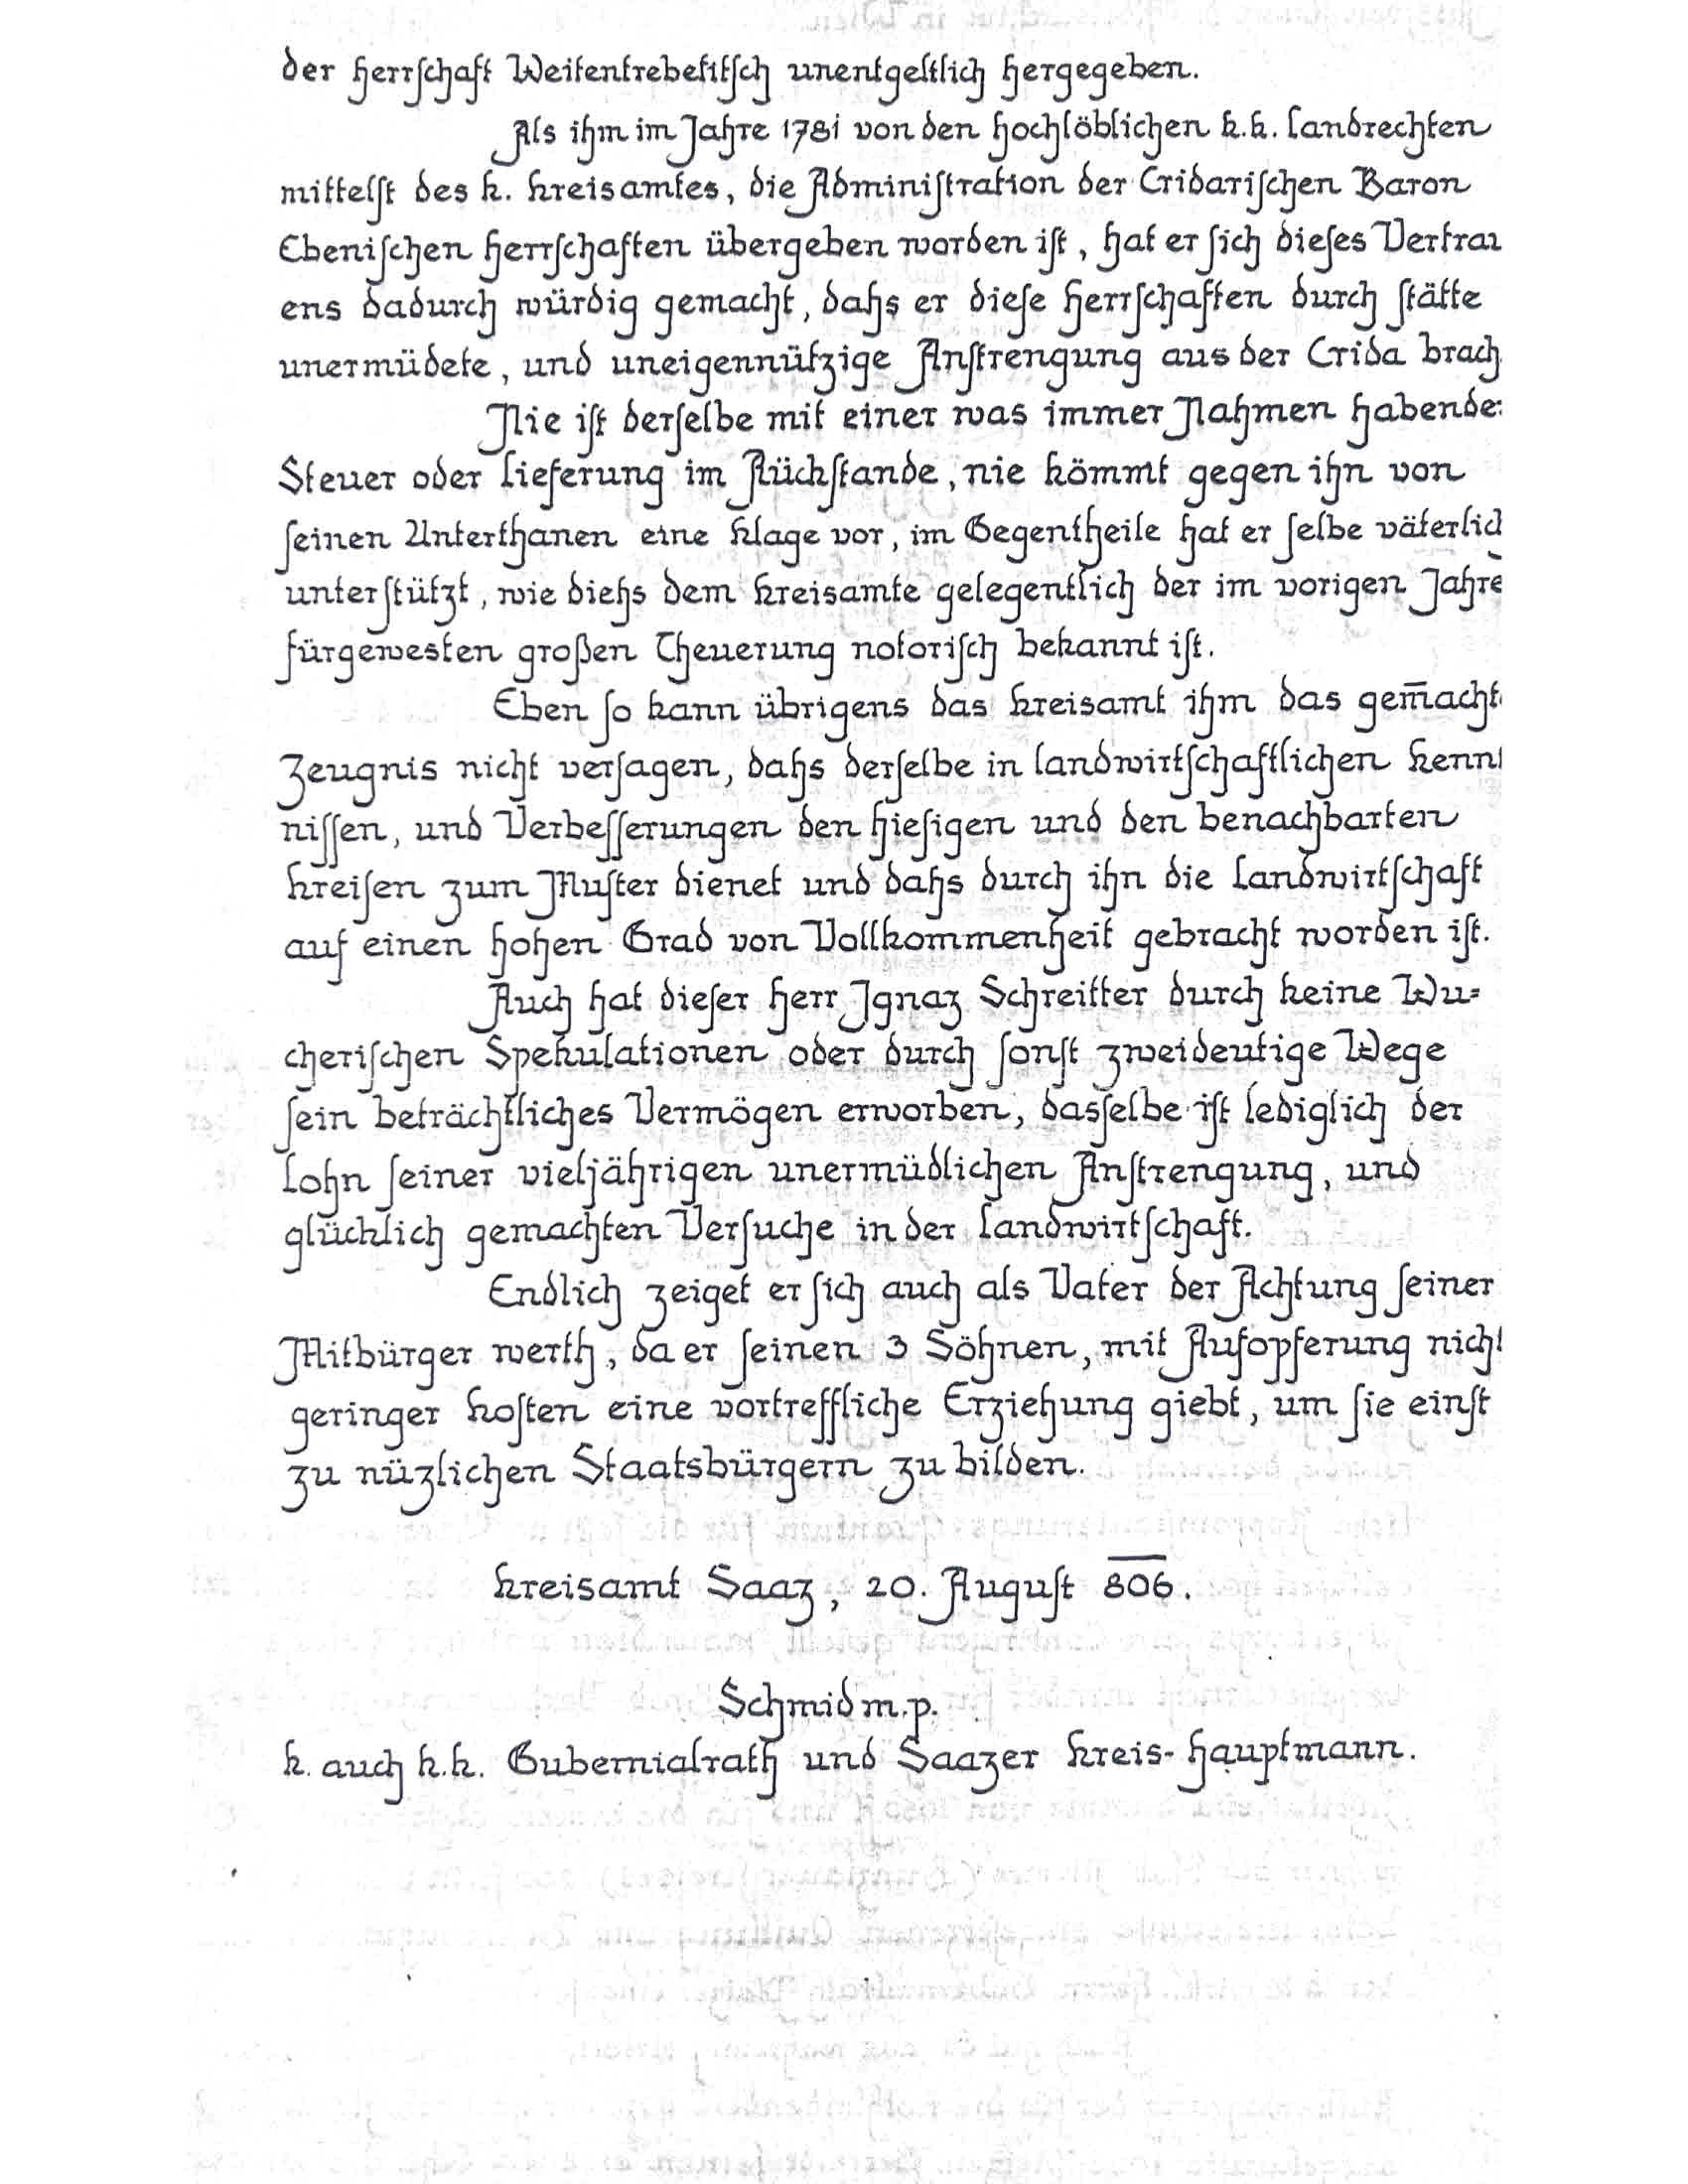 der Herrschaft Weitentrebetitsch unentgeltlich hergegeben.
Als ihm im Jahre 1781 von den hochlöblichen k.k. Landrechten
mittelst des k. Kreisamtes, die Administration der Cridarischen Baron
Ebenischen Herrschaften übergeben worden ist, hat er sich dieses Vertrau
ens dadurch würdig gemacht, dahs er diese Herrschaften durch stätte
unermüdete, und uneigennützige Anstrengung aus der Crida brach
Nie ist derselbe mit einer was immer Nahmen habende
Steuer oder Lieferung im Rückstande, nie kömmt gegen ihn von
seinen Unterthanen eine Klage vor, im Gegentheile hat er selbe väterlich
unterstützt, wie diehs dem Kreisamte gelegentlich der im vorigen Jahre
fürgewesten großen Theuerung notorisch bekannt ist.
Eben so kann übrigens das Kreisamt ihm das gem̅achte
Zeugnis nicht versagen, dahs derselbe in landwirtschaftlichen Kennt
nissen, und Verbesserungen den hiesigen und den benachbarten
Kreisen zum Muster dienet und dahs durch ihn die Landwirtschaft
auf einen hohen Grad von Vollkommenheit gebracht worden ist.
Auch hat dieser Herr Ignaz Schreitter durch keine Wu=
cherischen Spekulationen oder durch sonst zweideutige Wege
sein beträchtliches Vermögen erworben, dasselbe ist lediglich der
Lohn seiner vieljährigen unermüdlichen Anstrengung, und
glücklich gemachten Versuche in der Landwirtschaft.
Endlich zeiget er sich auch als Vater der Achtung seiner
Mitbürger werth, da er seinen 3 Söhnen, mit Aufopferung nicht
geringer Kosten eine vortreffliche Erziehung giebt, um sie einst
zu nüzlichen Staatsbürgern zu bilden.
Kreisamt Saaz, 20. August 806.
Schmid m.p.
k. auch k.k. Gubernialrath und Saazer Kreis-Hauptmann.